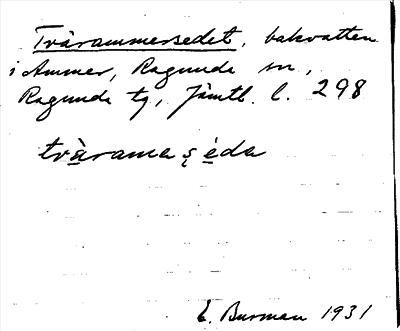 Tvärammersedet, bakvatten
i Ammer, Ragunda sn,
Ragunda tg, Jämtl. l. 298
tvärama ş èda
E. Burman 1931